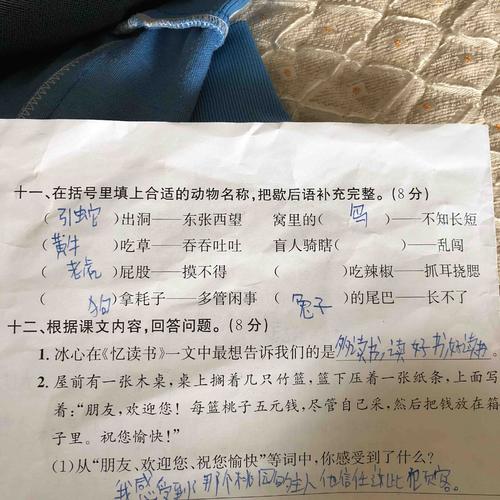 十一、在括号里填上合适的动物名称,把歇后语补充完整。(8分)
(引蛇)出洞——东张西望 窝里的(鸟)——不知长短
(黄牛)吃草——吞吞吐吐 盲人骑瞎( )——乱闯
(老虎)屁股——摸不得 ( )吃辣椒——抓耳挠腮
(狗)拿耗子——多管闲事 (兔子)的尾巴——长不了
十二、根据课文内容,回答问题。(8分)
1. 冰心在《忆读书》一文中最想告诉我们的是多读书,读好书,好读书。
2. 屋前有一张木桌,桌上搁着几只竹篮,篮下压着一张纸条,上面写
着:“朋友,欢迎您!每篮桃子五元钱,尽管自己采,然后把钱放在箱
子里。祝您愉快!”
(1)从“朋友、欢迎您、祝您愉快”等词中,你感受到了什么?
我感受到那个桃园的主人他信任